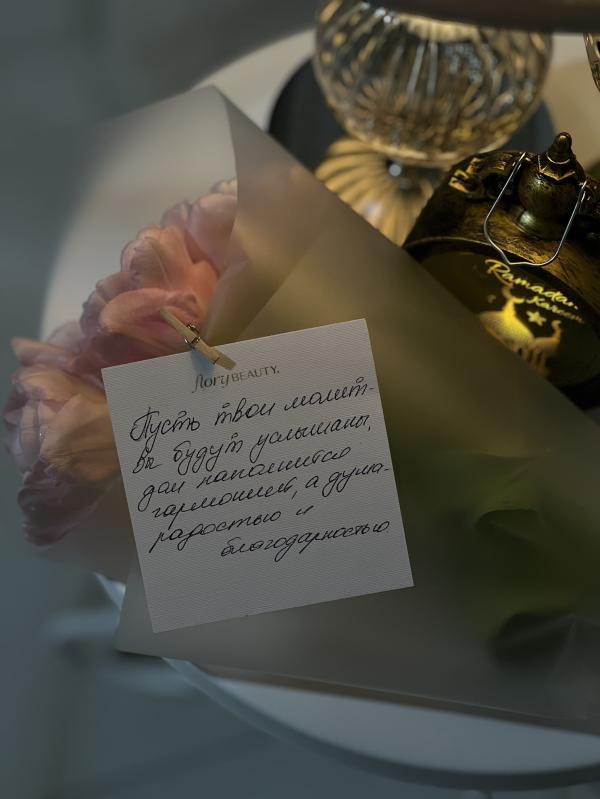 flory BEAUTY.
Пусть твои молит-
вы будут услышаны,
дом наполнится
гармонией, а душа-
радостью и
благодарностью.
Ramadan
Kareem